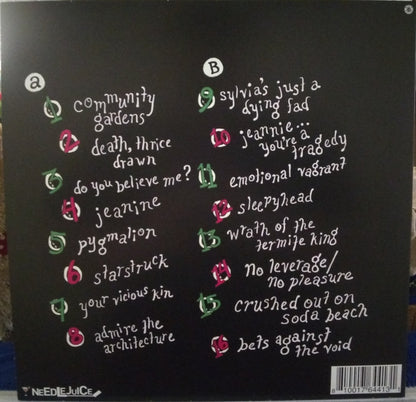 a
1 community
gardens
2 death, thrice
drawn
3 do you believe me?
4 jeanine
5 pygmalion
6 starstruck
7 your vicious kin
8 admire the
architecture
B
9 sylvia's just a
dying fad
10 jeannie...
you're a
tragedy
11 emotional vagrant
12 sleepyhead
13 wrath of the
termite king
14 no leverage/
no pleasure
15 crushed out on
soda beach
16 bets against
the void
NEEDLEJUICE